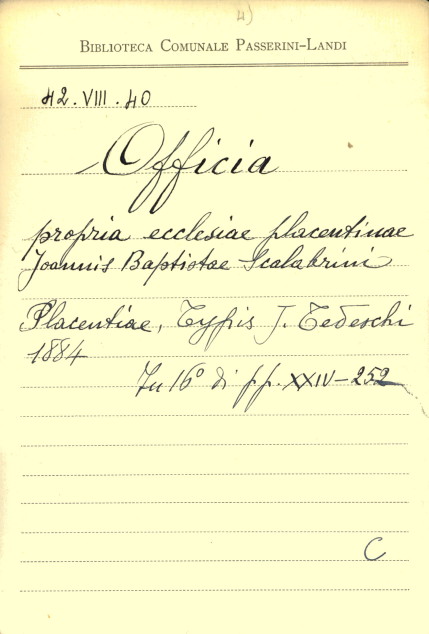 4)
BIBLIOTECA COMUNALE PASSERINI-LANDI
42.VIII.40
Officia
propria ecclesiae placentinae
Joannis Baptistae Scalabrini
Placentiae, Typis J. Tedeschi
1884
In 16° di pp. XXIV-252
C